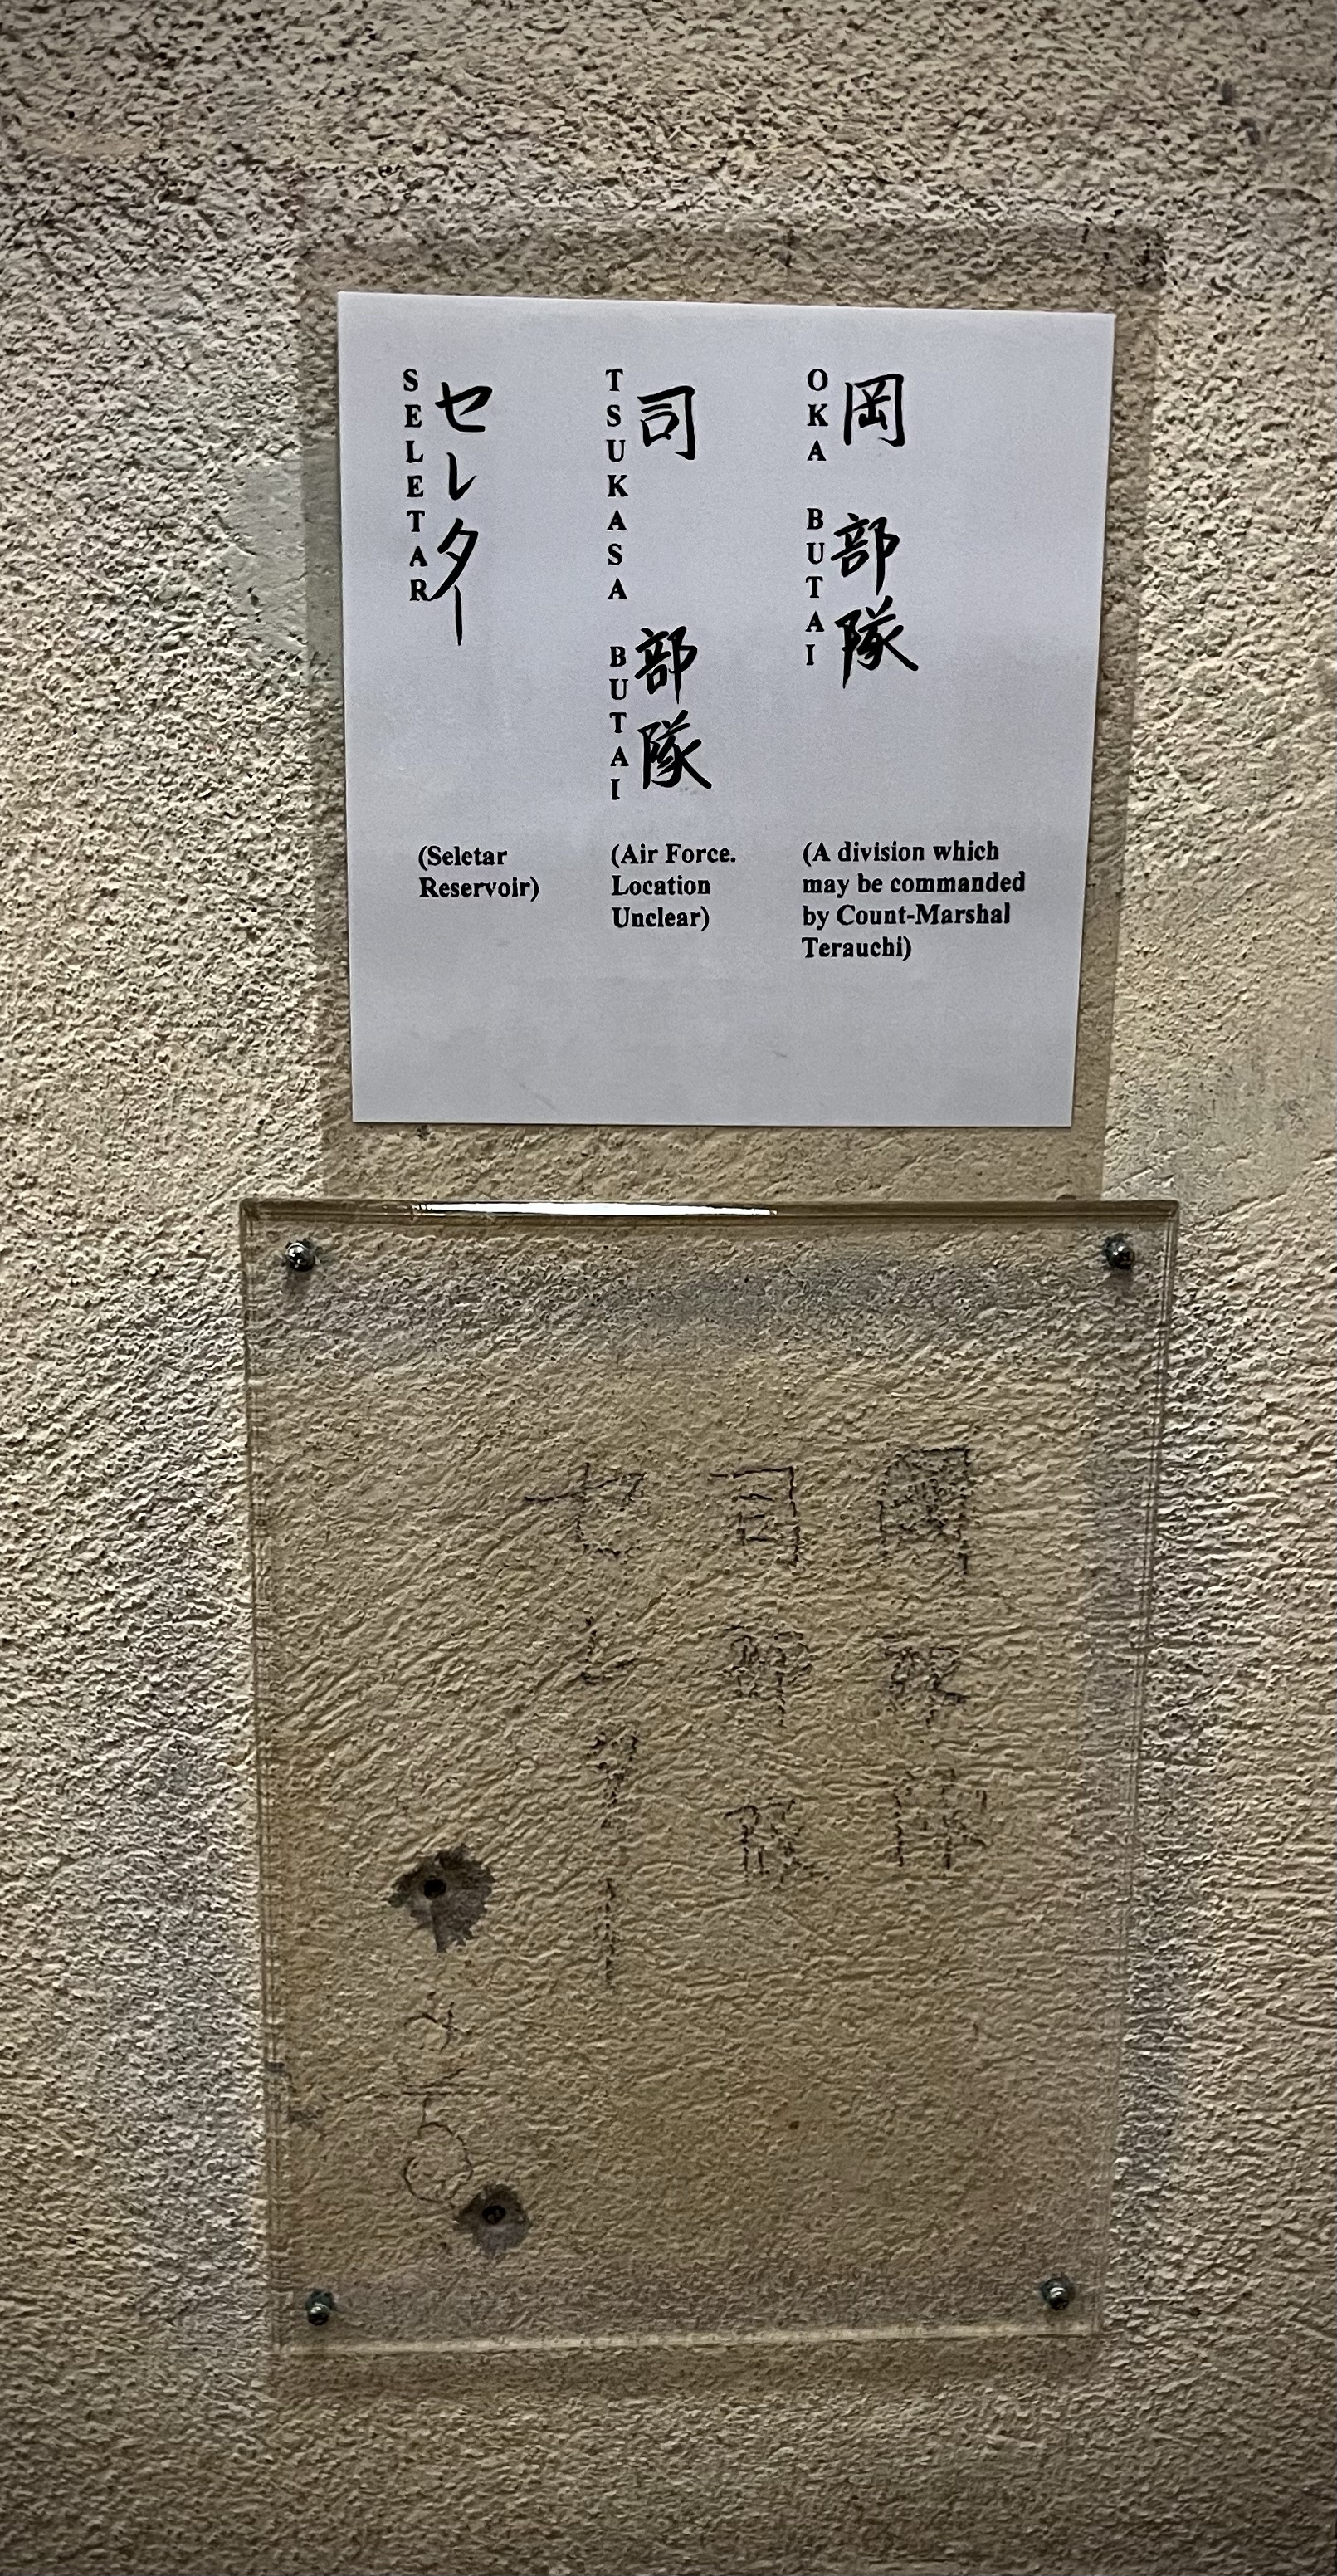 岡部隊
OKA BUTAI
(A division which
may be commanded
by Count-Marshal
Terauchi)
司部隊
TSUKASA BUTAI
(Air Force.
Location
Unclear)
セレター
SELETAR
(Seletar
Reservoir)
岡部隊
司部隊
セレター